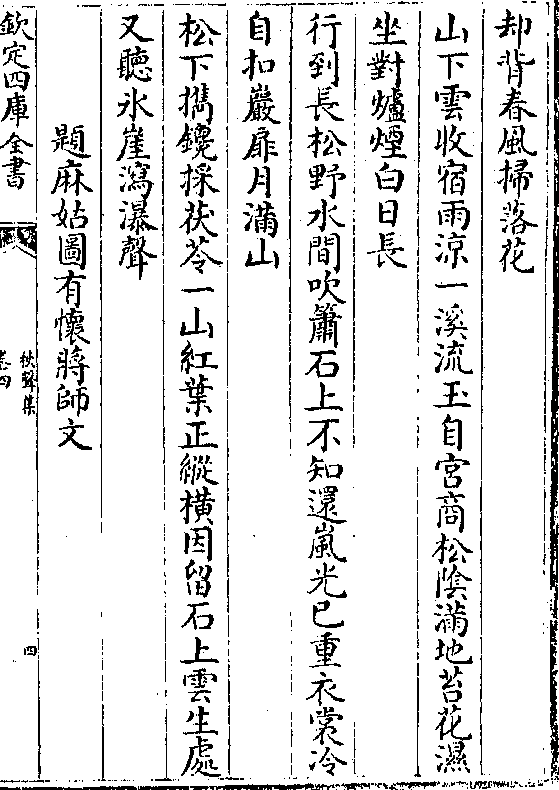 却背春風掃落花
山下雲收宿雨涼一溪流玉自宮商松陰滿地苔花濕
坐對爐煙白日長
行到長松野水間吹簫石上不知還嵐光已重衣裳冷
自扣巖扉月滿山
松下攜鑱採茯苓一山紅葉正縱橫因留石上雲生處
又聽氷崖瀉瀑聲
題麻姑圖有懷蔣師文
欽定四庫全書
秋聲集
卷四
四